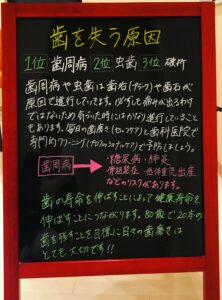 歯を失う原因
1位 歯周病 2位 虫歯 3位 破折
歯周病や虫歯は歯石(プラーク)や歯石が
原因で進行していきます。必ずしも痛みが出るわけ
ではないため気づいた時には進行していることも
あります。毎日の歯磨き(セルフケア)と歯科医院で
専門的クリーニング(プロフェッショナルケア)で予防しましょう。
歯周病 → ・糖尿病・肺炎
・骨粗鬆症・低体重児出産
などのリスクがあります。
歯の寿命を伸ばすことによって健康寿命を
伸ばすことにつながります。80歳で20本の
歯を残すことを目標に日々の歯磨きは
とても大切です!!